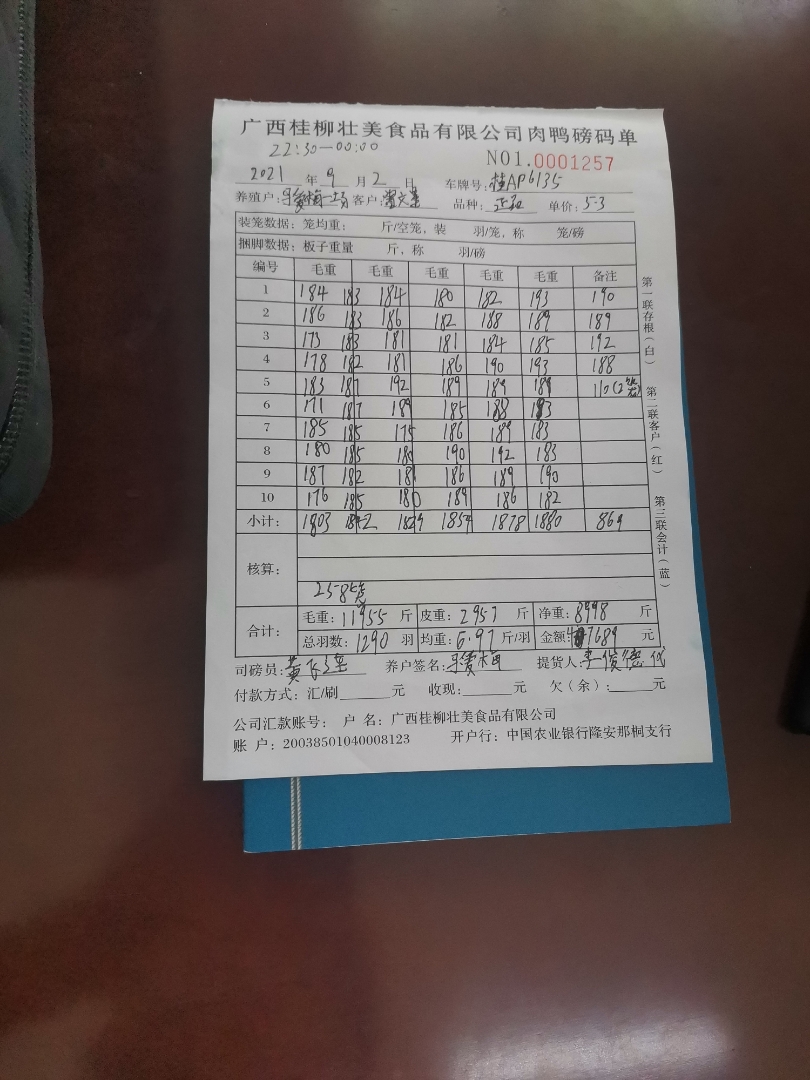 广西桂柳壮美食品有限公司肉鸭磅码单
22:30—00:00
NO1.0001257
2021 年 9 月 2 日 车牌号: 桂AP6135
养殖户: 客户: 品种: 正和 单价: 5.3
装笼数据: 笼均重: 斤/空笼, 装 羽/笼, 称 笼/磅
捆脚数据: 板子重量 斤, 称 羽/磅
编号 毛重 毛重 毛重 毛重 毛重 备注
1 184 183 184 180 182 193 190
2 186 183 186 182 188 189 189
3 173 183 181 181 184 185 192
4 178 182 181 186 190 193 188
5 183 187 192 189 189 189 110(2笼)
6 171 187 189 185 188 183
7 185 185 175 186 189 183
8 180 185 180 190 192 183
9 187 182 181 186 189 190
10 176 185 180 189 186 182
小计: 1803 1842 1829 1854 1878 1880 869
核算:
258笼
合计: 毛重: 11955 斤 皮重: 2957 斤 净重: 8998 斤
总羽数: 1290 羽 均重: 6.97 斤/羽 金额: 47689 元
司磅员: 养户签名: 提货人: 李俊德 代
付款方式: 汇/刷 元 收现: 元 欠(余): 元
公司汇款账号: 户 名: 广西桂柳壮美食品有限公司
账 户: 20038501040008123 开户行: 中国农业银行隆安那桐支行
第一联存根(白)
第二联客户(红)
第三联会计(蓝)